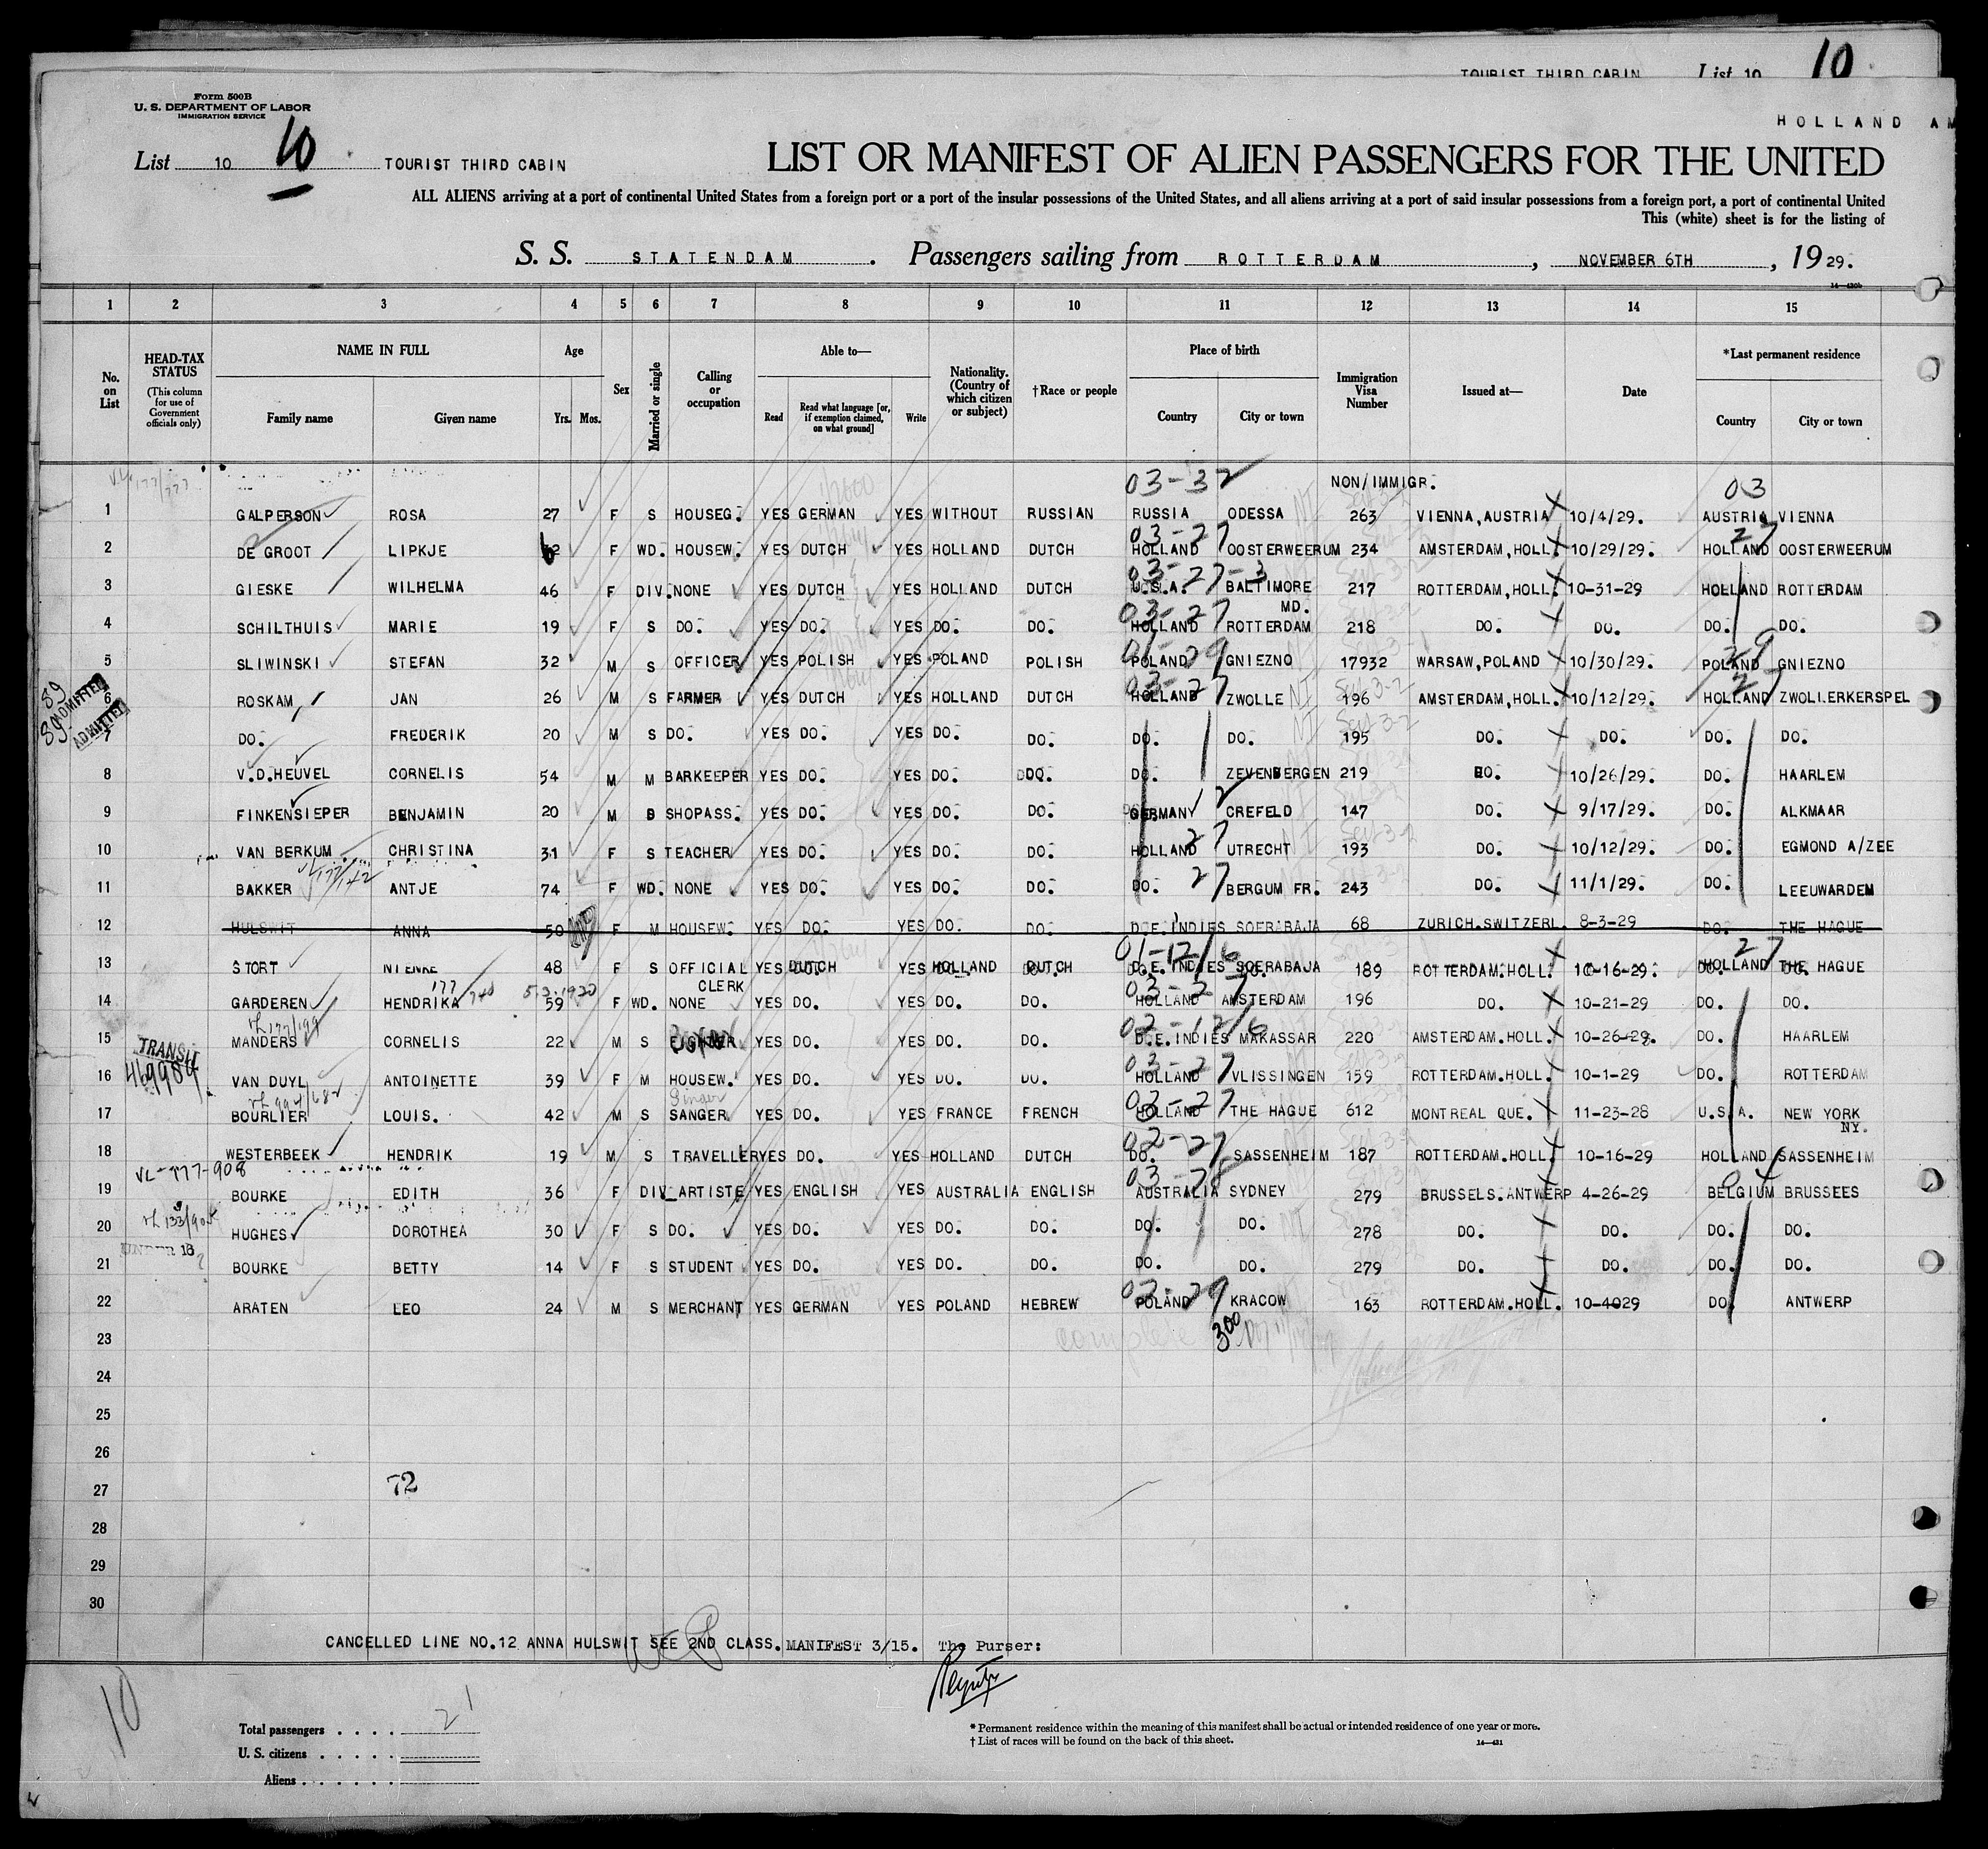 TOURIST THIRD CABIN List 10 10
Form 500B
U. S. DEPARTMENT OF LABOR
IMMIGRATION SERVICE
HOLLAND AM
List 10 10 TOURIST THIRD CABIN
LIST OR MANIFEST OF ALIEN PASSENGERS FOR THE UNITED
ALL ALIENS arriving at a port of continental United States from a foreign port or a port of the insular possessions of the United States, and all aliens arriving at a port of said insular possessions from a foreign port, a port of continental United
This (white) sheet is for the listing of
S. S. STATENDAM. Passengers sailing from ROTTERDAM, NOVEMBER 6TH, 1929.
1 2 3 4 5 6 7 8 9 10 11 12 13 14 15
No. on List
HEAD-TAX STATUS
(This column for use of Government officials only)
NAME IN FULL
Family name Given name
Age
Yrs. Mos.
Sex
Married or single
Calling or occupation
Able to—
Read Read what language [or, if exemption claimed, on what ground] Write
Nationality. (Country of which citizen or subject)
†Race or people
Place of birth
Country City or town
Immigration Visa Number
Issued at—
Date
*Last permanent residence
Country City or town
03-32 NON/IMMIGR. 03
1 GALPERSON ROSA 27 F S HOUSEG. YES GERMAN YES WITHOUT RUSSIAN RUSSIA ODESSA 263 VIENNA, AUSTRIA 10/4/29. AUSTRIA VIENNA
03-27 27
2 DE GROOT LIPKJE 62 F WD. HOUSEW. YES DUTCH YES HOLLAND DUTCH HOLLAND OOSTERWEERUM 234 AMSTERDAM, HOLL. 10/29/29. HOLLAND OOSTERWEERUM
03-27-3
3 GIESKE WILHELMA 46 F DIV. NONE YES DUTCH YES HOLLAND DUTCH U.S.A. BALTIMORE MD. 217 ROTTERDAM, HOLL. 10-31-29 HOLLAND ROTTERDAM
03-27
4 SCHILTHUIS MARIE 19 F S DO. YES DO. YES DO. DO. HOLLAND ROTTERDAM 218 DO. DO. DO. DO.
01-29 29
5 SLIWINSKI STEFAN 32 M S OFFICER YES POLISH YES POLAND POLISH POLAND GNIEZNO 17932 WARSAW, POLAND 10/30/29. POLAND GNIEZNO
89 ADMITTED 03-27 27
6 ROSKAM JAN 26 M S FARMER YES DUTCH YES HOLLAND DUTCH HOLLAND ZWOLLE 196 AMSTERDAM, HOLL. 10/12/29. HOLLAND ZWOLLERKERSPEL
89 ADMITTED
7 DO. FREDERIK 20 M S DO. YES DO. YES DO. DO. DO. DO. 195 DO. DO. DO. DO.
8 V.D.HEUVEL CORNELIS 54 M M BARKEEPER YES DO. YES DO. DO. DO. ZEVENBERGEN 219 DO. 10/26/29. DO. HAARLEM
9 FINKENSIEPER BENJAMIN 20 M S SHOPASS. YES DO. YES DO. DO. GERMANY CREFELD 147 DO. 9/17/29. DO. ALKMAAR
27
10 VAN BERKUM CHRISTINA 31 F S TEACHER YES DO. YES DO. DO. HOLLAND UTRECHT 193 DO. 10/12/29. DO. EGMOND A/ZEE
27
11 BAKKER ANTJE 74 F WD. NONE YES DO. YES DO. DO. DO. BERGUM FR. 243 DO. 11/1/29. DO. LEEUWARDEM
12 HULSWIT ANNA 50 F M HOUSEW. YES DO. YES DO. DO. D.E.INDIES SOERABAJA 68 ZURICH.SWITZERL. 8-3-29 DO. THE HAGUE
01-12/6 27
13 STORT NIENKE 48 F S OFFICIAL CLERK YES DUTCH YES HOLLAND DUTCH D.E.INDIES SOERABAJA 189 ROTTERDAM.HOLL. 10-16-29. HOLLAND THE HAGUE
177/740 5.2.1930 03-27
14 GARDEREN HENDRIKA 59 F WD. NONE YES DO. YES DO. DO. HOLLAND AMSTERDAM 196 DO. 10-21-29 DO. DO.
177/199 02-12/6
15 MANDERS CORNELIS 22 M S YES DO. YES DO. DO. D.E.INDIES MAKASSAR 220 AMSTERDAM.HOLL. 10-26-29. DO. HAARLEM
TRANSIT 469989 03-27
16 VAN DUYL ANTOINETTE 39 F M HOUSEW. YES DO. YES DO. DO. HOLLAND VLISSINGEN 159 ROTTERDAM.HOLL. 10-1-29 DO. ROTTERDAM
Singer 03-27
17 BOURLIER LOUIS. 42 M S SANGER YES DO. YES FRANCE FRENCH HOLLAND THE HAGUE 612 MONTREAL QUE. 11-23-28 U.S.A. NEW YORK NY.
02-27
18 WESTERBEEK HENDRIK 19 M S TRAVELLER YES DO. YES HOLLAND DUTCH DO. SASSENHEIM 187 ROTTERDAM.HOLL. 10-16-29 HOLLAND SASSENHEIM
VL-777-908 03-78 04
19 BOURKE EDITH 36 F DIV. ARTISTE YES ENGLISH YES AUSTRALIA ENGLISH AUSTRALIA SYDNEY 279 BRUSSELS.ANTWERP 4-26-29 BELGIUM BRUSSEES
20 HUGHES DOROTHEA 30 F S DO. YES DO. YES DO. DO. DO. DO. 278 DO. DO. DO. DO.
UNDER 18
21 BOURKE BETTY 14 F S STUDENT YES DO. YES DO. DO. DO. DO. 279 DO. DO. DO. DO.
02-29
22 ARATEN LEO 24 M S MERCHANT YES GERMAN YES POLAND HEBREW POLAND KRACOW 163 ROTTERDAM.HOLL. 10-4029 DO. ANTWERP
23 complete 300
24
25
26
27 72
28
29
30
CANCELLED LINE NO.12 ANNA HULSWIT SEE 2ND CLASS. MANIFEST 3/15. The Purser:
10
Total passengers . . . . 21
U. S. citizens . . . . .
Aliens . . . . . .
* Permanent residence within the meaning of this manifest shall be actual or intended residence of one year or more.
† List of races will be found on the back of this sheet.
14—431